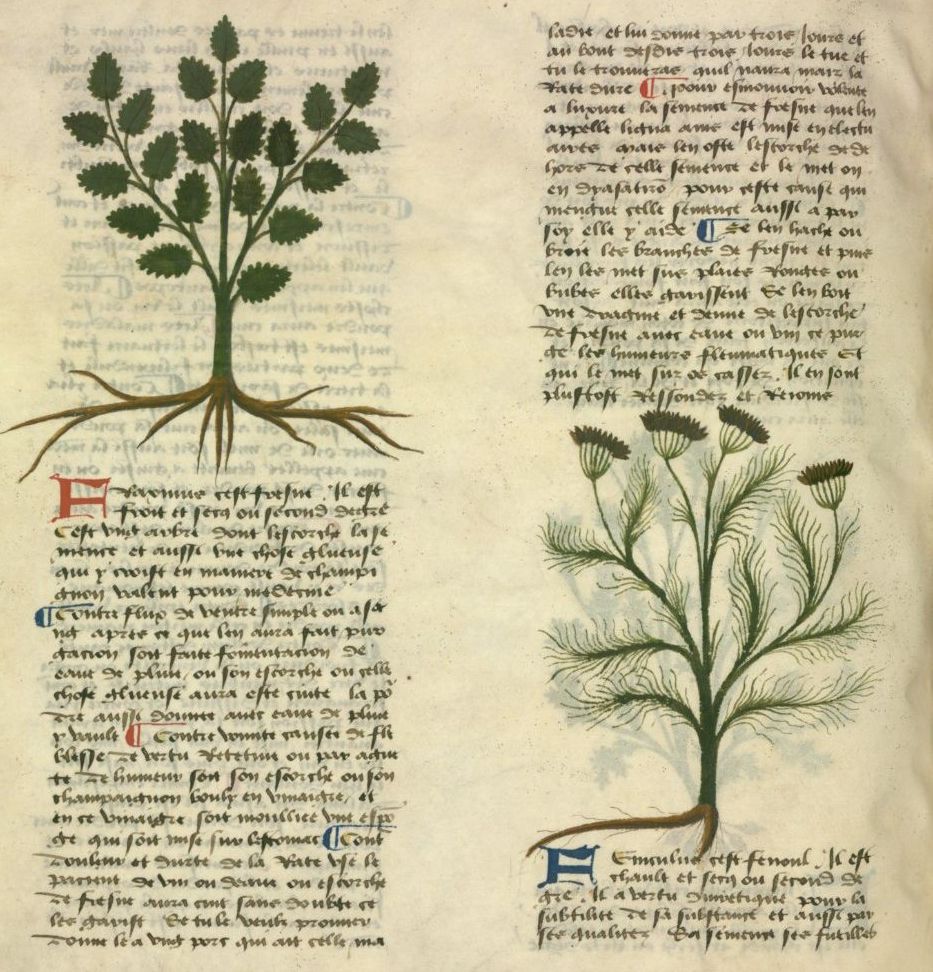 Fraxinus cest fresne. Il est
froit et secq ou second degre
Cest ung arbre dont lescorche la se
mence et aussi une chose glueuse
qui y croist en maniere de champi
gnon valent pour medecine
¶ Contre flux de ventre simple ou a sa
ng apres ce que len aura fait pur
gacion soit faite fomentacion de
eaue de pluie, ou son escorche ou celle
chose glueuse aura este cuite la po
dre aussi donnee avec eaue de pluie
y vault ¶ Contre vomite causee de fle
blesse de vertu Retetive ou par ague
te de humeur soit son escorche ou son
champaignon bouly en vinaigre, et
en ce vinaigre soit moulliee une espo
ge qui soit mise sur lestomac ¶ Cont
douleur et durte de la Rate use le
pacient de vin ou deaue ou escorche
de fresne aura cuit sans doubte ce
les garist Se tu le veulx prouver
donne le a ung porc qui ait celle ma
ladie, et lui donne par trois Jours et
au bout desdis trois Jours le tue et
tu le trouveras quil naura mair la
Rate dure ¶ pour esmouvoir volente
a luxure la semence de fresne que len
appelle ligua avis est mise en electu
aires mais len oste lescorche de de
hors de celle semence et le met on
en dyasatiro pour ceste cause qui
mengue celle semence aussi a par
soy elle y aide ¶ Se len hache ou
broie les branches de fresne et puis
len les met sus plaies Rouges ou
bubes elles garissent Se len boit
une dragme et demie de lescorche
de fresne avec eaue ou vin ce pur
ge les humeurs fleumatiques Et
qui le met sur os cassez. Ilz en sont
plustost Ressoudez et Reioins
Feniculus cest fenoul. Il est
chault et secq ou second de
gre. Il a vertu diuretique pour la
subtilite de sa substance et aussi par
ses qualitez Sa semence ses fueilles